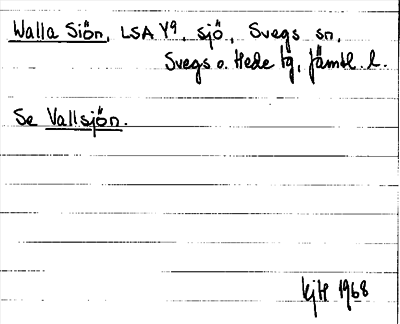 Walla Siön, LSA Y9, sjö, Svegs sn,
Svegs o. Hede tg, Jämtl. l.
Se Vallsjön.
KjH 1968